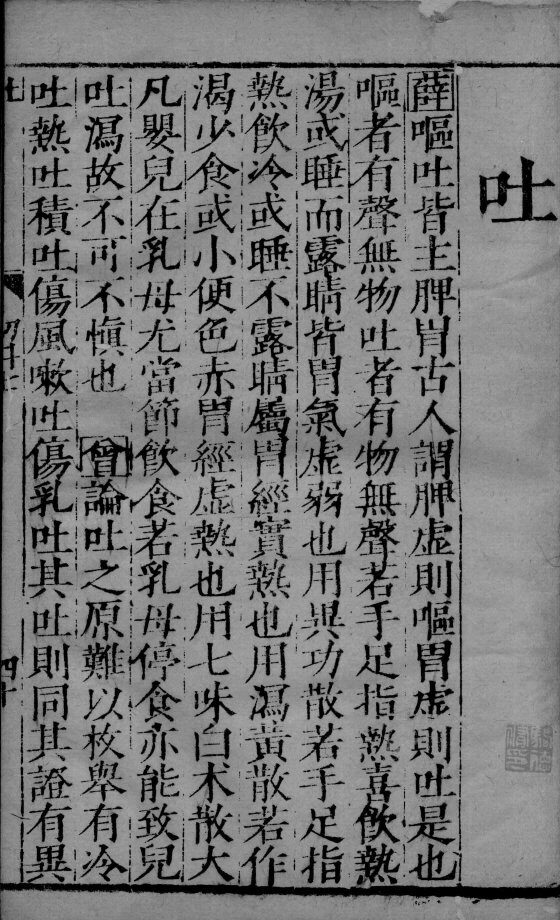 吐
薛嘔吐皆主脾胃古人謂脾虛則嘔胃虛則吐是也
嘔者有聲無物吐者有物無聲若手足指熱喜飲熱
湯或睡而露睛皆胃氣虛弱也用異功散若手足指
熱飲冷或睡不露睛屬胃經實熱也用瀉黃散若作
渴少食或小便色赤胃經虛熱也用七味白术散大
凡嬰兒在乳母尤當節飲食若乳母停食亦能致兒
吐瀉故不可不愼也 曾論吐之原難以枚舉有冷
吐熱吐積吐傷風嗽吐傷乳吐其吐則同其證有異
四十